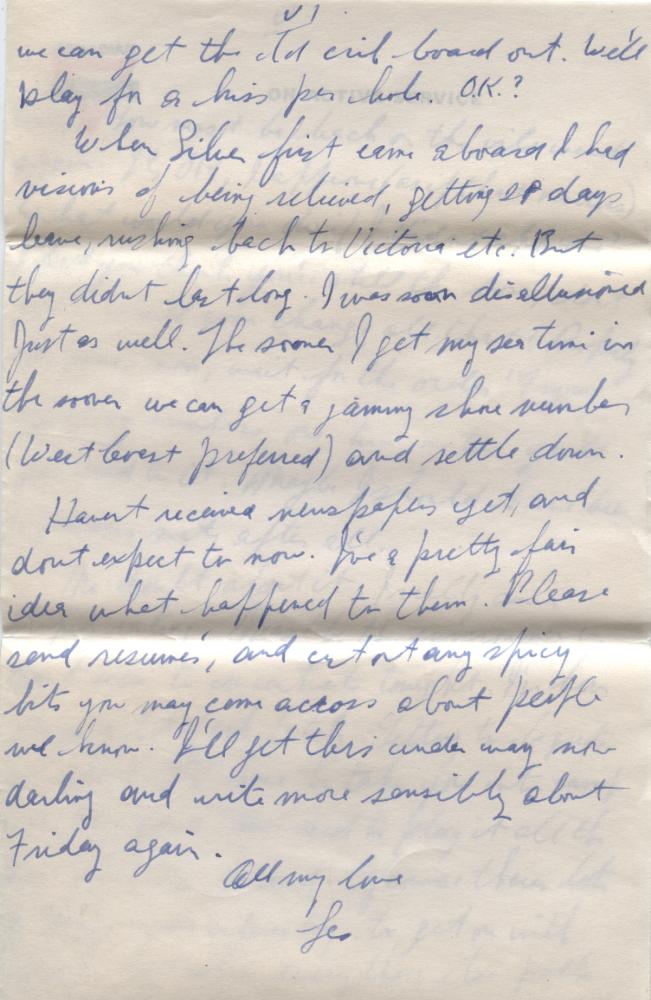 VI
we can get the old crib board out. We'll
play for a kiss per hole. O.K.?
When Silver first came aboard I had
visions of being relieved, getting 28 days
leave, rushing back to Victoria etc. But
they didn't last long. I was soon disallusioned
Just as well. The sooner I get my sea time in
the sooner we can get a jammy shore number
(West Coast preferred) and settle down.
Havent received newspapers yet, and
dont expect to now. I've a pretty fair
idea what happened to them. Please
send resumes, and cut out any spicy
bits you may come across about people
we know. I'll get this under way now
darling and write more sensibly about
Friday again.
All my love
Les